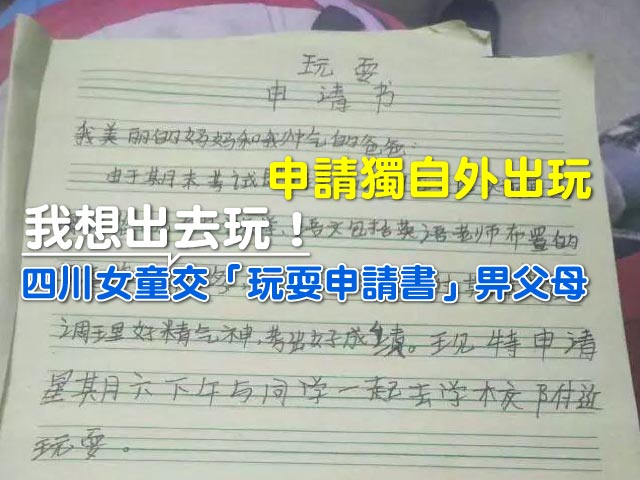 玩耍
申请书
我美丽的妈妈和我帅气的爸爸：
由于期末考试
申請獨自外出玩
我想出去玩！
语文包括英语老师布置的
四川女童交「玩耍申請書」畀父母
调理好精气神，考出好成绩。现特申请
星期六下午与同学一起去学校附近
玩耍。